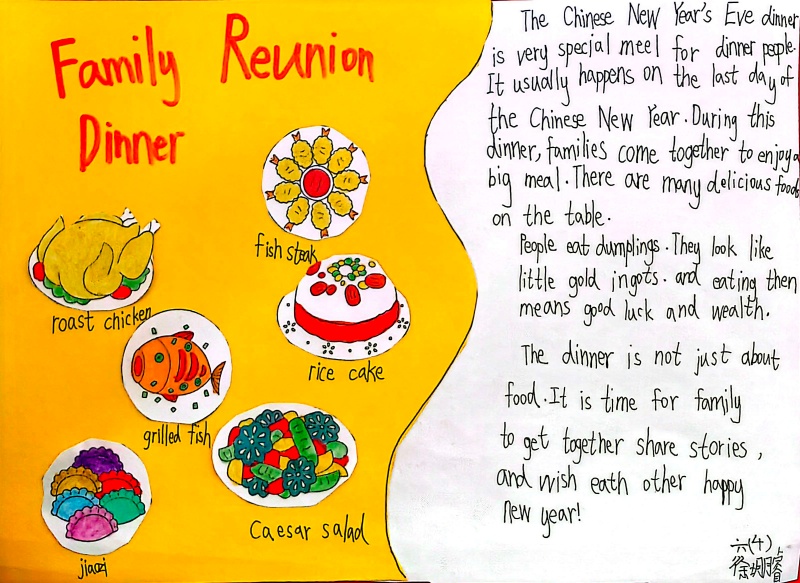 Family Reunion
Dinner
fish steak
roast chicken
rice cake
grilled fish
Caesar salad
jiaozi
The Chinese New Year's Eve dinner
is very special meel for dinner people.
It usually happens on the last day of
the Chinese New Year. During this
dinner, families come together to enjoy a
big meal. There are many delicious foods
on the table.
People eat dumplings. They look like
little gold ingots. and eating then
means good luck and wealth.
The dinner is not just about
food. It is time for family
to get together share stories,
and wish eath other happy
new year!
六(4)